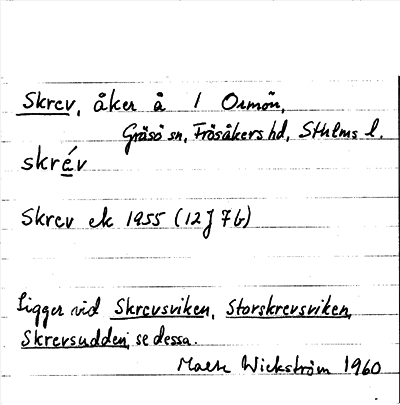 Skrev, åker å 1 Ormön,
Gräsö sn, Frösåkers hd, Sthlms l.
skrév
Skrev ek 1955 (12J 7b)
Ligger vid Skrevsviken, Storskrevsviken,
Skrevsudden, se dessa.
Wickström 1960